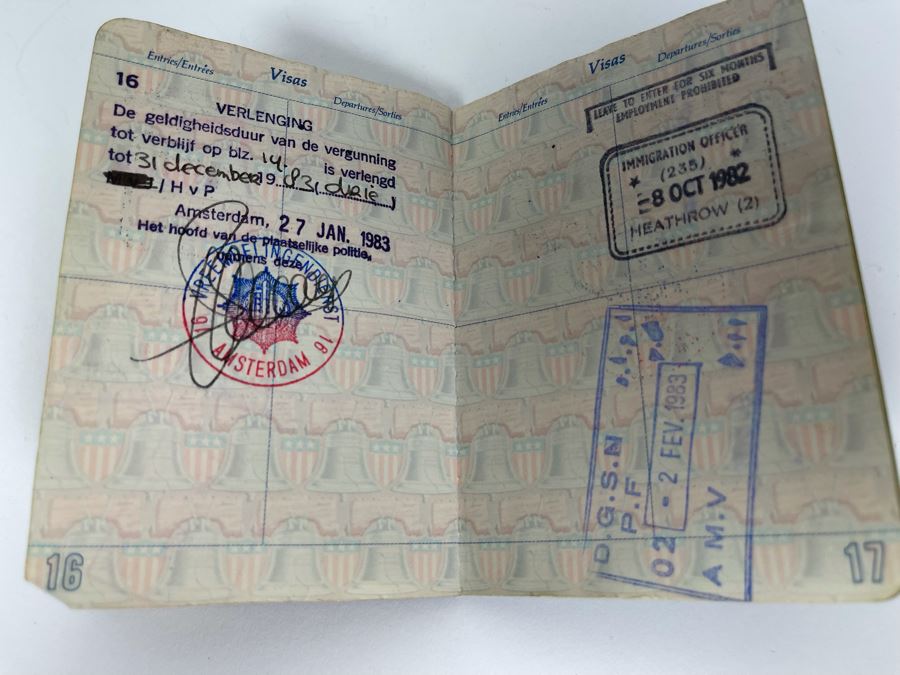 Entries/Entrées
Visas
Departures/Sorties
16
VERLENGING
De geldigheidsduur van de vergunning
tot verblijf op blz. 14. is verlengd
tot 31 december 19 83, drie
/ H v P
Amsterdam, 27 JAN. 1983
Het hoofd van de plaatselijke politie,
namens deze,
VREEMDELINGENDIENST
16 AMSTERDAM 16
16
Entries/Entrées
Visas
Departures/Sorties
LEAVE TO ENTER FOR SIX MONTHS
EMPLOYMENT PROHIBITED
IMMIGRATION OFFICER
* (235) *
-8 OCT 1982
HEATHROW (2)
D.G.S.N
P.F
02 - 2 FEV. 1983
A M.V
17